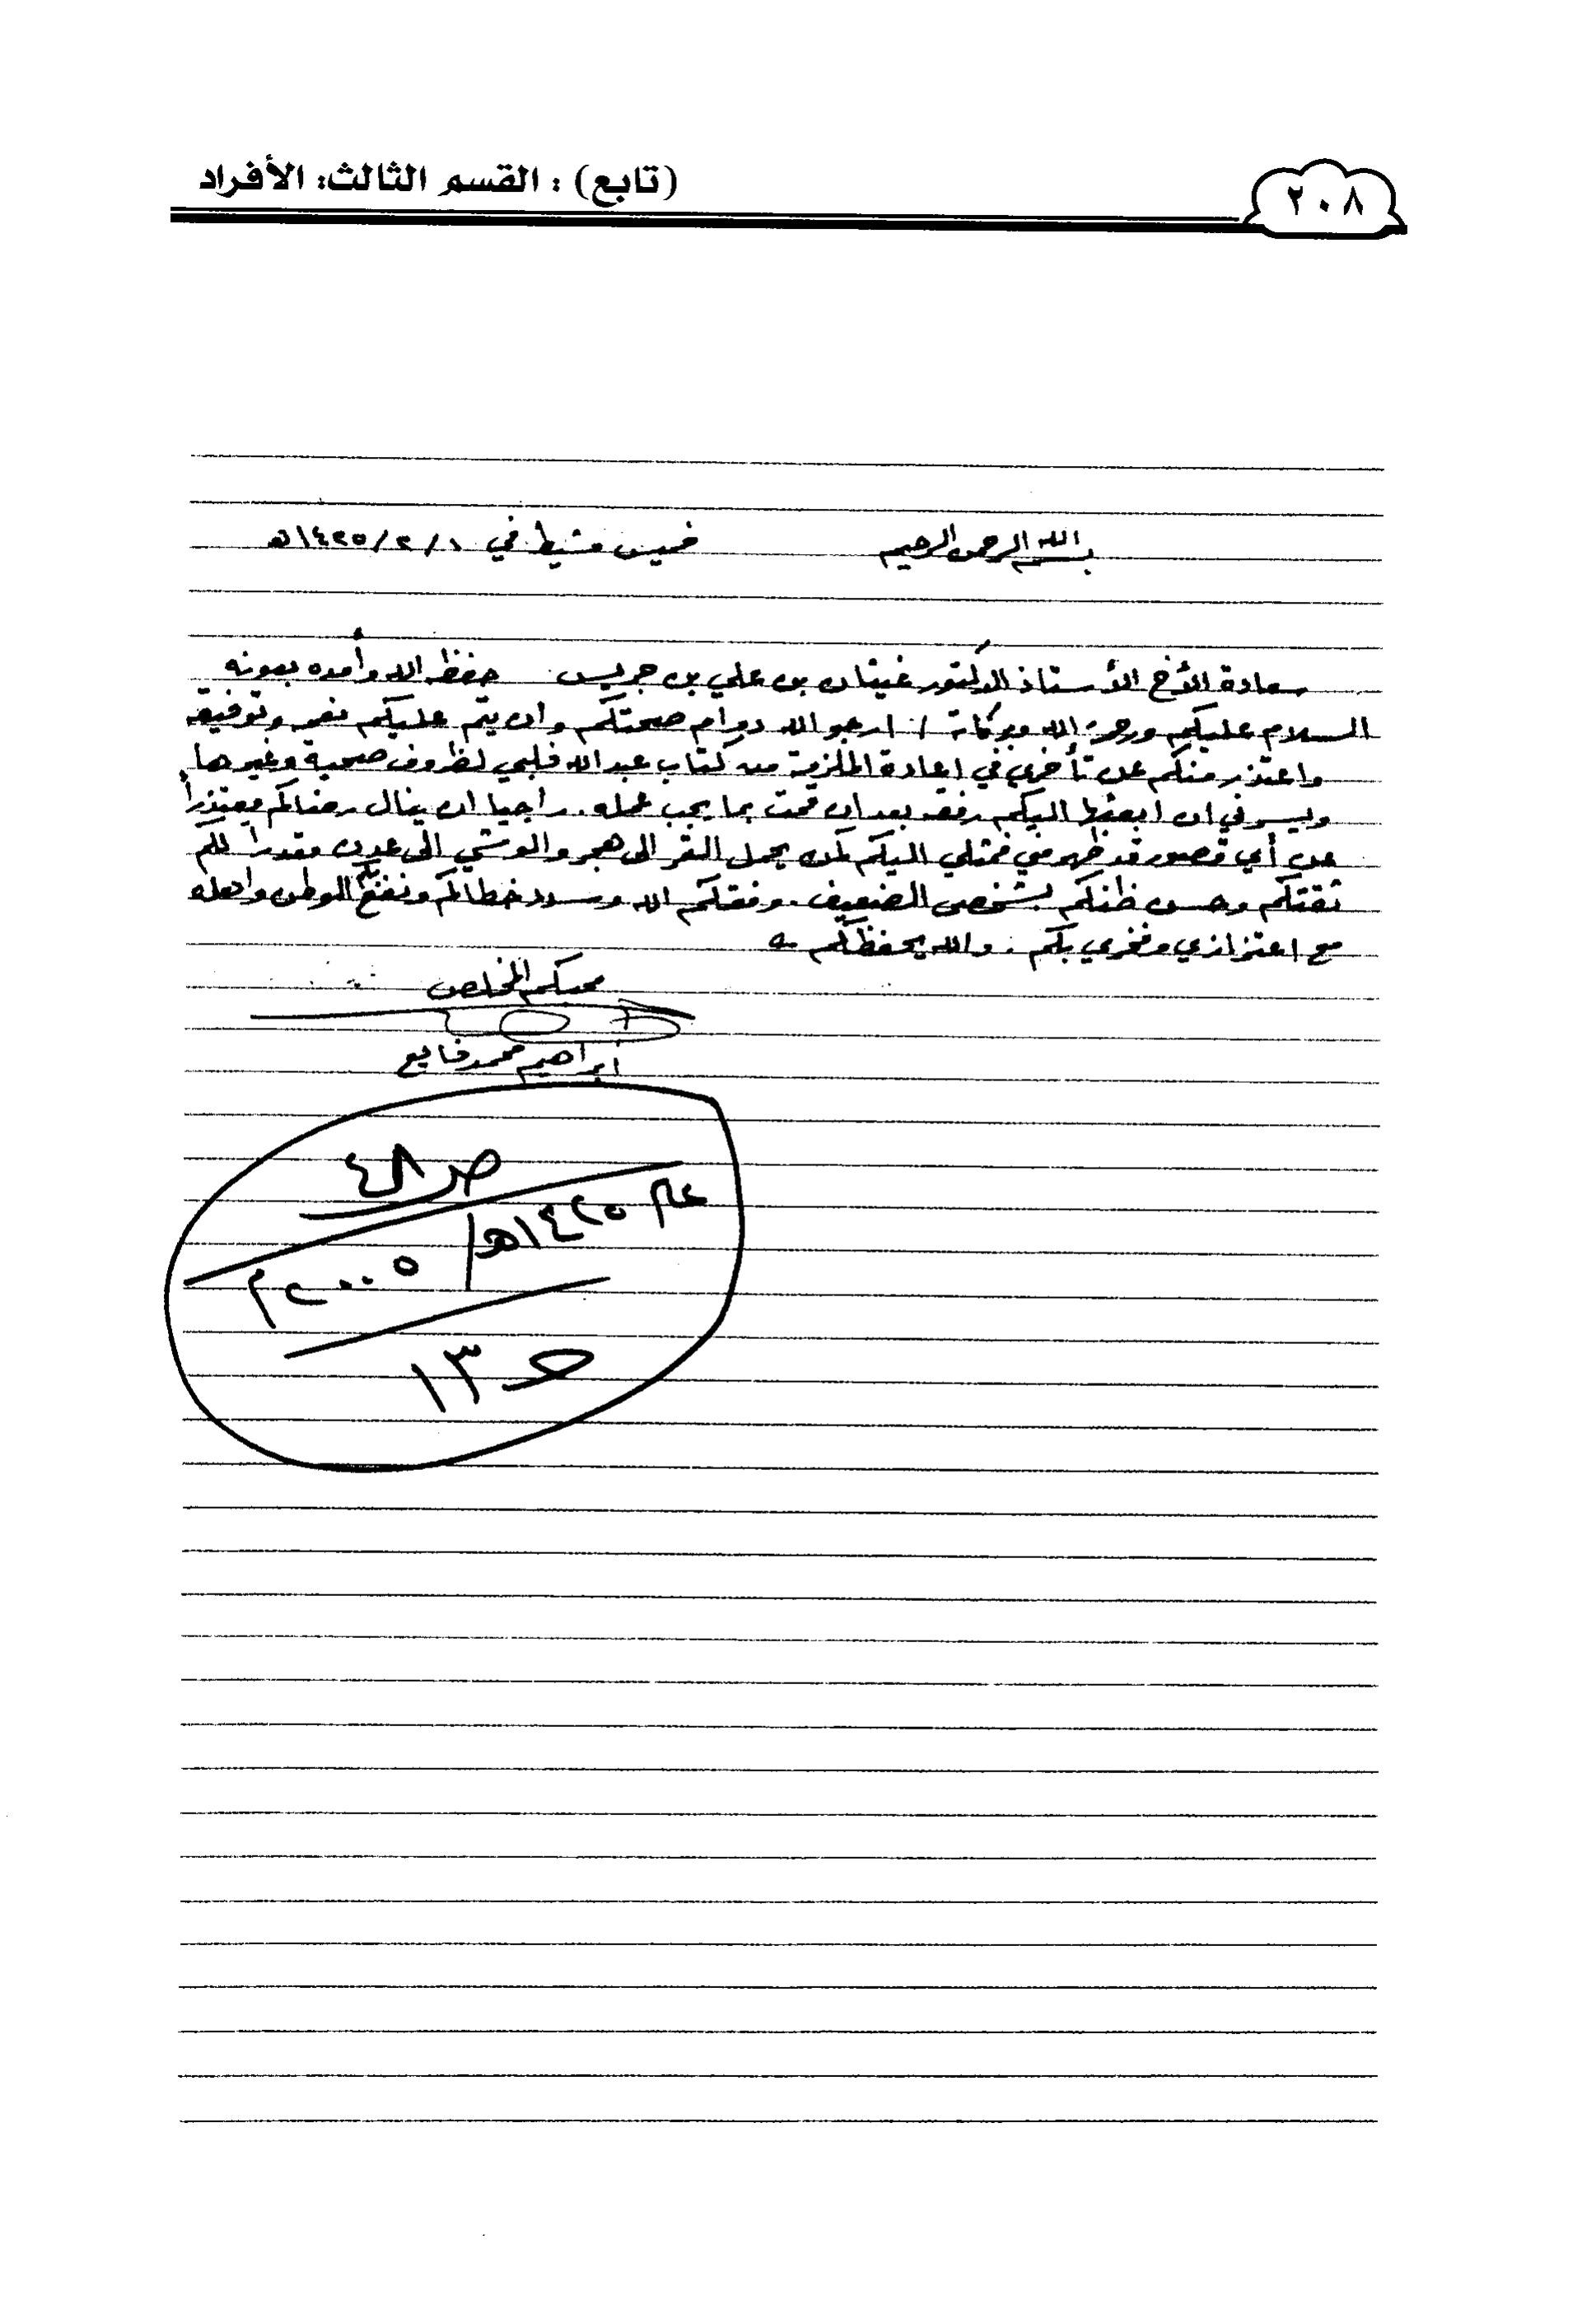 ٢٠٨
(تابع) : القسم الثالث: الأفراد
بسم الله الرحمن الرحيم
خميس مشيط في ١/٢/١٤٢٥هـ
سعادة الأخ الأستاذ الدكتور غيثان بن علي بن جريس حفظه الله وأمده بعونه
السلام عليكم ورحمة الله وبركاته / ارجو الله دوام صحتكم وأن يتم عليكم نعمه وتوفيقه
واعتذر منكم عن تأخري في إعادة الملزمة من كتاب عبد الله فلبي لظروف صحية وغيرها
ويسرني ان ابعثها اليكم رفقه بعد ان قمت بما يجب عمله. راجيا ان ينال رضاكم معتذراً
عن أي قصور قد ظهر مني فمثلي اليكم كمن يحمل التمر الى هجر والوشي الى عدن مقدراً لكم
ثقتكم وحسن ظنكم بشخصي الضعيف. وفقكم الله وسدد خطاكم ونفع بكم الوطن واهله
مع اعتزازي وفخري بكم. والله يحفظكم
محبكم المخلص
ابراهيم محمد فايع
ص ٤٨
عام ١٤٢٥هـ/
٢٠٠٥م
حـ ١٣